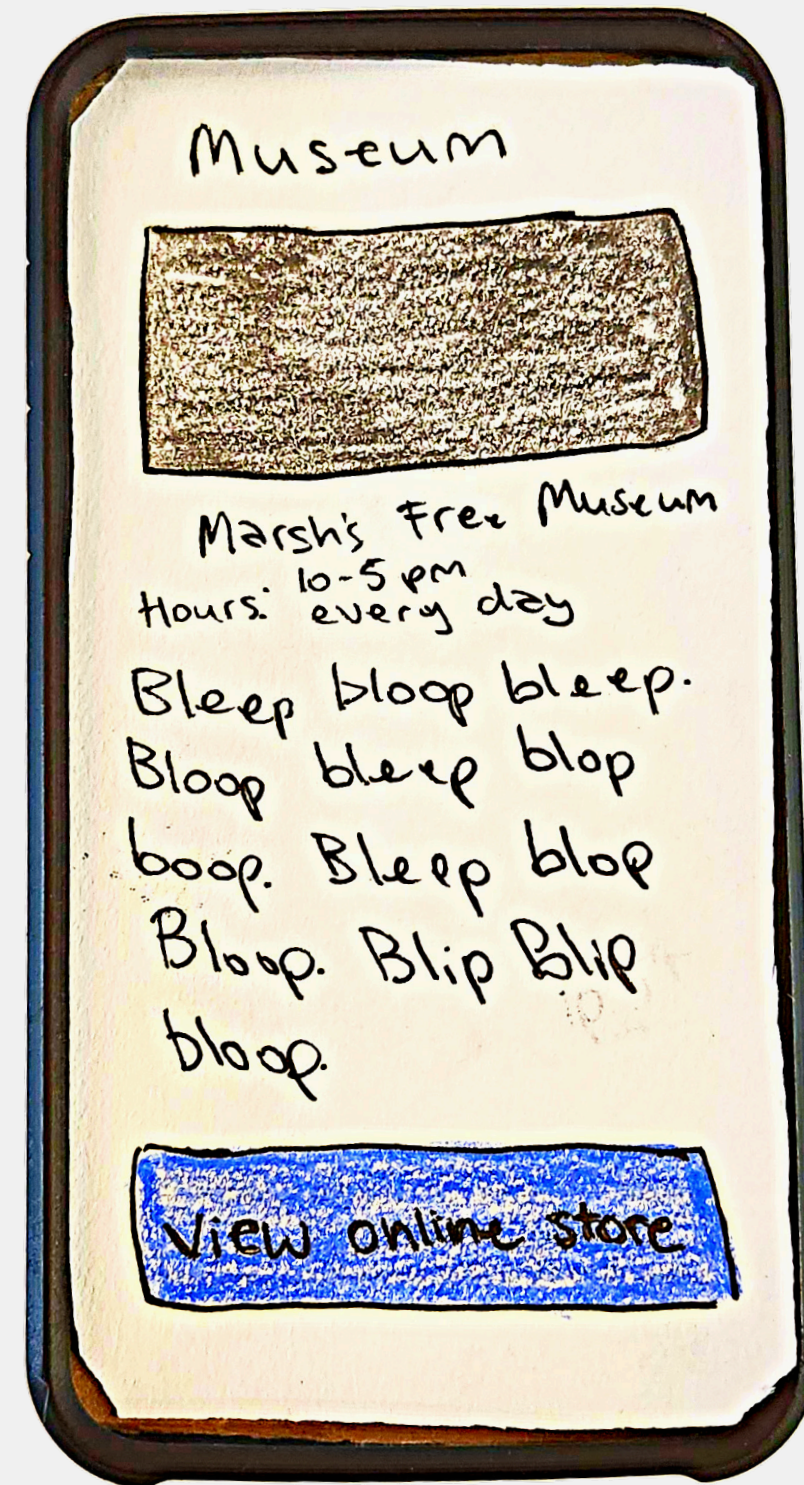 Museum
Marsh's Free Museum
Hours: 10-5 pm
every day
Bleep bloop bleep.
Bloop bleep blop
boop. Bleep blop
Bloop. Blip Blip
bloop.
View online store